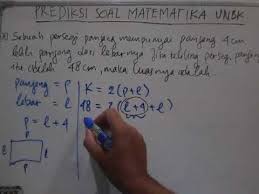 PREDIKSI SOAL MATEMATIKA UNBK
Sebuah persegi panjang mempunyai panjang 4 cm
lebih panjang dari lebarnya. Jika keliling persegi panjang
itu adalah 48 cm, maka luasnya adalah
panjang = p
lebar = l
p = l + 4
p
l
l
p
K = 2(p+l)
48 = 2((l+4)+l)
48 =